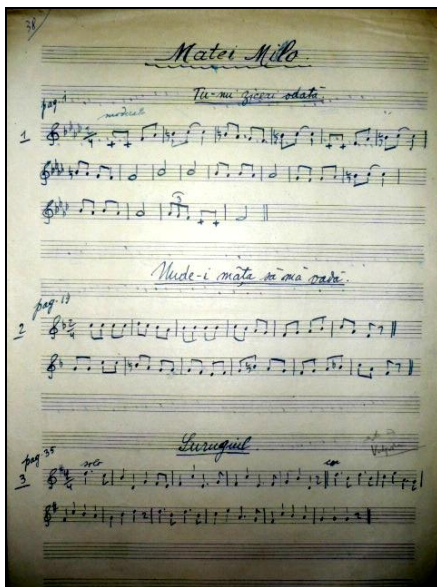 38
Matei Millo
Tu-nu ziceai odată
pag. 1
moderato
1
Unde-i mâța să mă vadă.
pag. 19
2
Surugiul
pag 35
solo
3